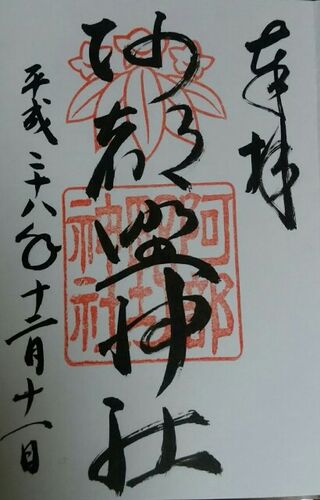 奉拝
阿部野神社
平成二十八年十二月十一日
阿部野神社